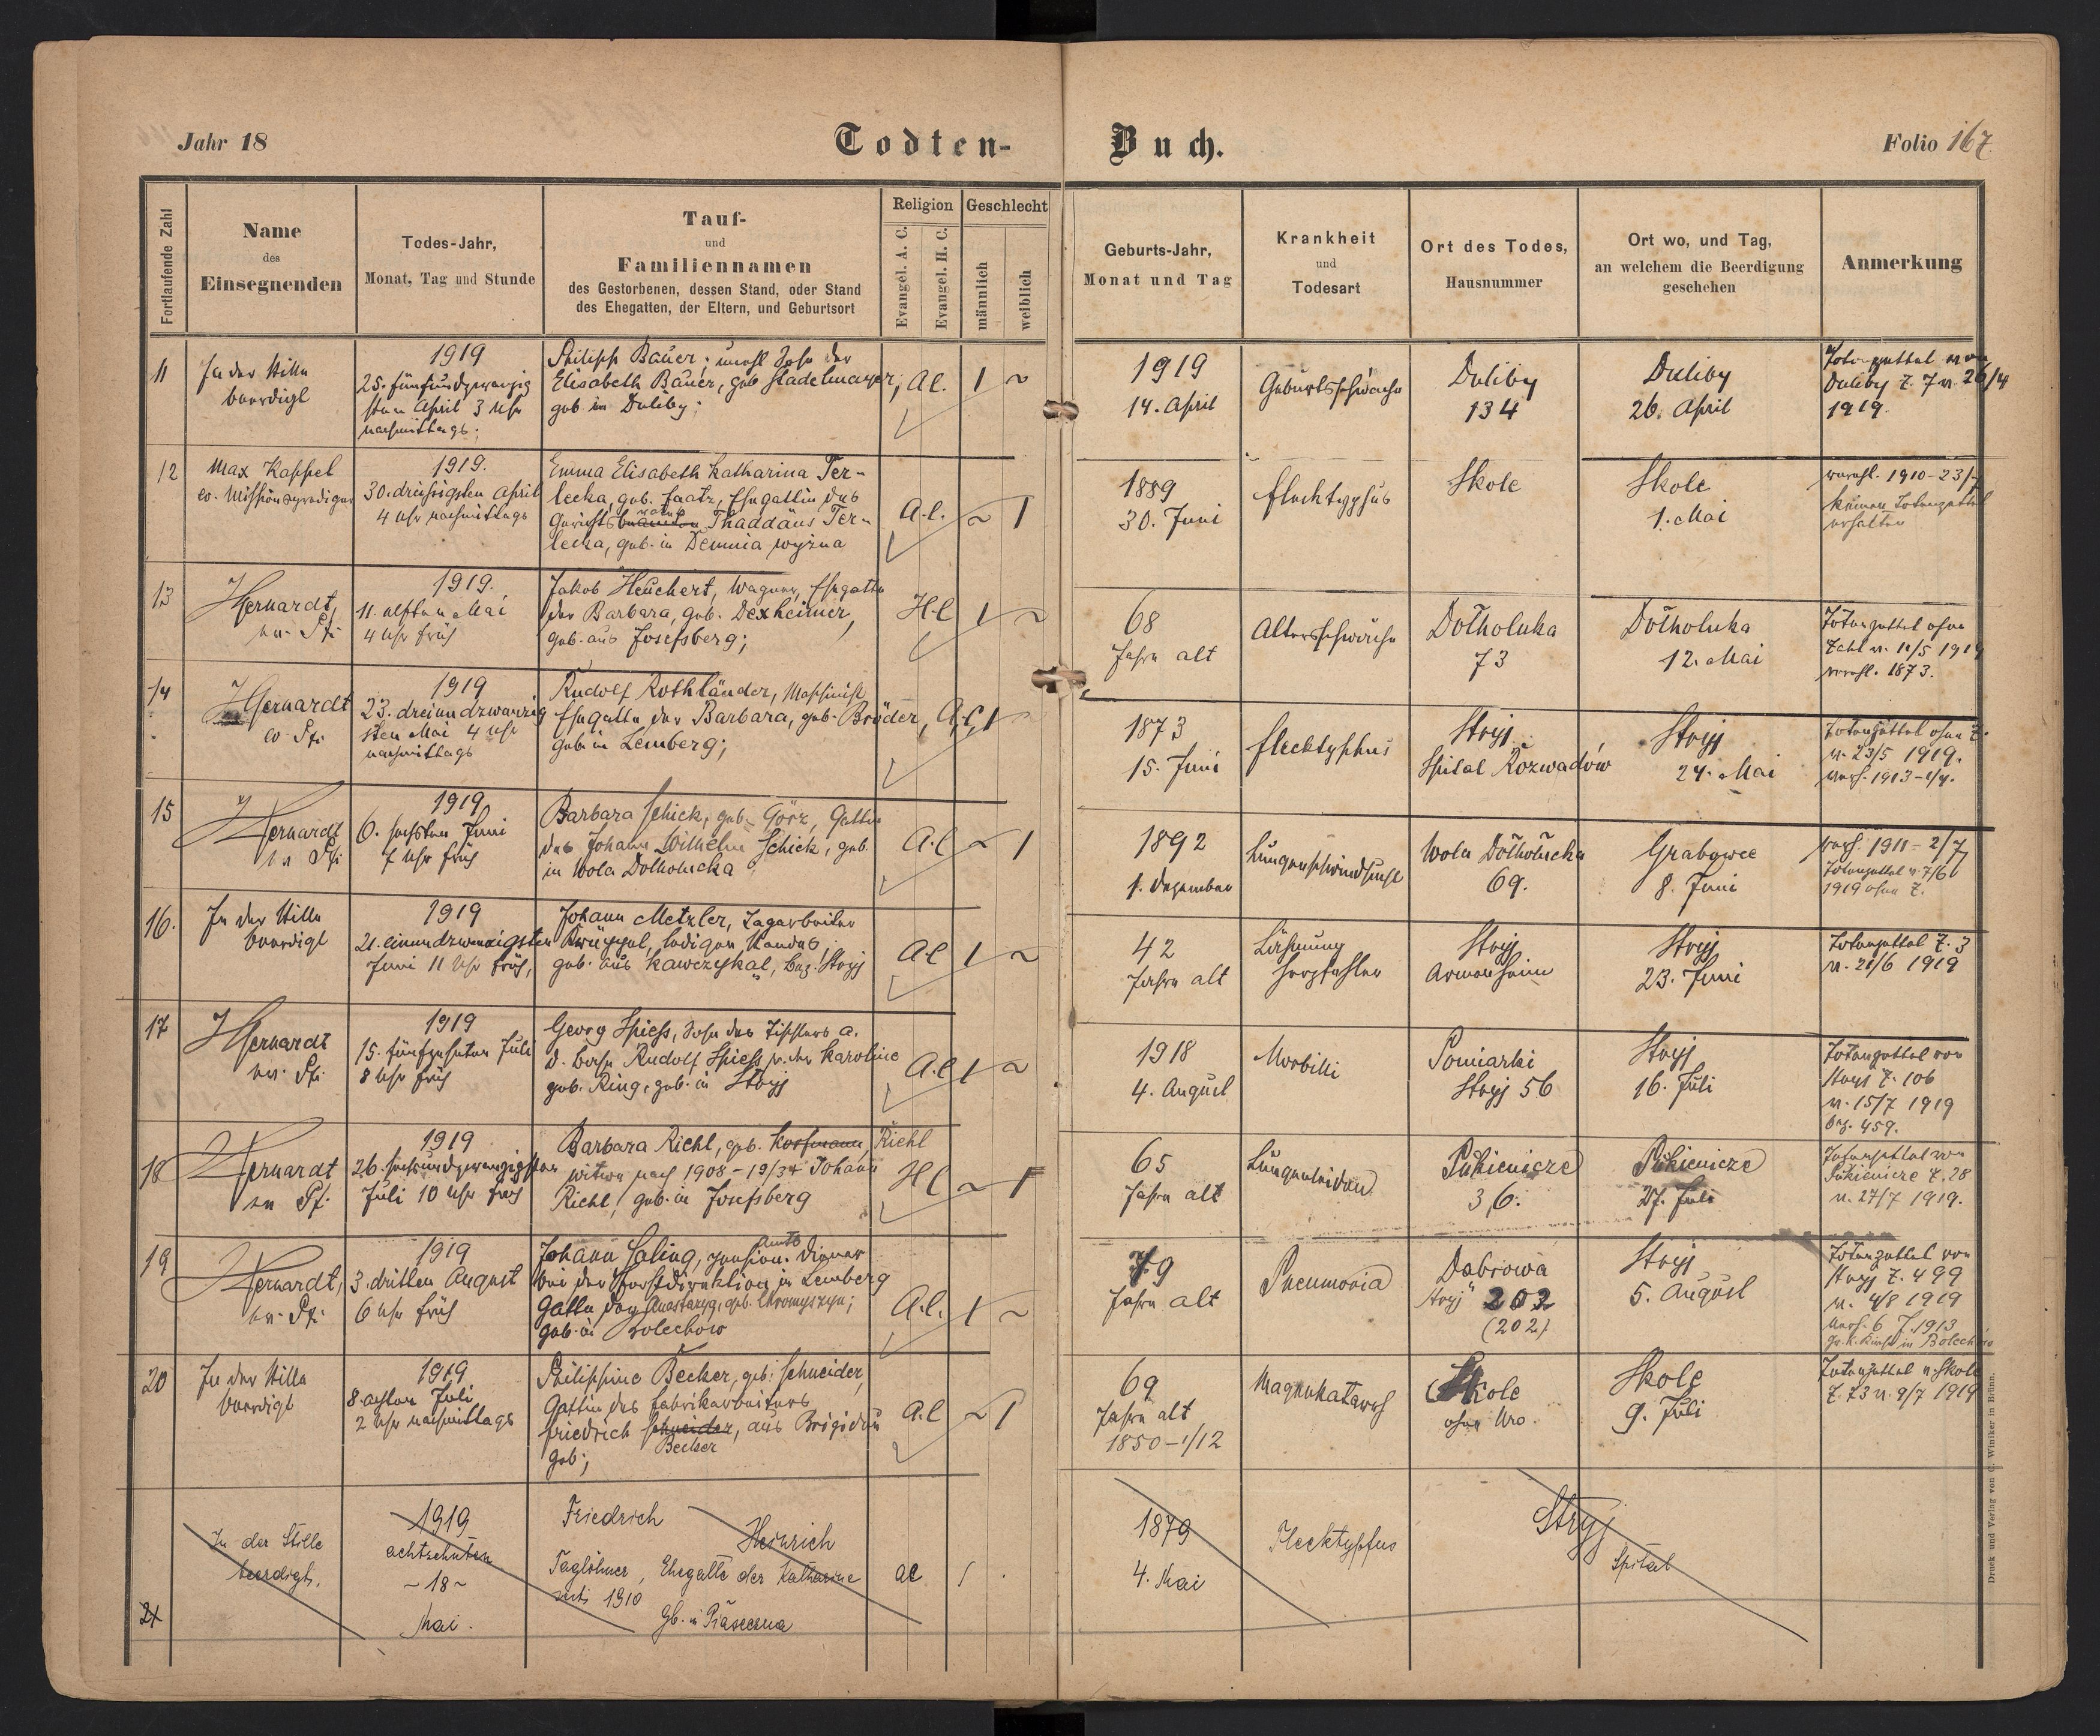 Jahr 18
Todten-
Buch.
Folio 167
Fortlaufende Zahl
Name
des
Einsegnenden
Todes-Jahr,
Monat, Tag und Stunde
Tauf-
und
Familiennamen
des Gestorbenen, dessen Stand, oder Stand
des Ehegatten, der Eltern, und Geburtsort
Religion
Evangel. A. C.
Evangel. H. C.
Geschlecht
männlich
weiblich
Geburts-Jahr,
Monat und Tag
Krankheit
und
Todesart
Ort des Todes,
Hausnummer
Ort wo, und Tag,
an welchem die Beerdigung
geschehen
Anmerkung
11
In der Stille
beerdigt
1919
25. fünfundzwanzig
sten April 3 Uhr
nachmittags;
Philipp Bauer; unehl Sohn der
Elisabeth Bauer, geb Stadelmayer,
geb in Duliby;
A.C.
1
~
1919
14. April
Geburtsschwäche
Duliby
134
Duliby
26. April
Totenzettel von
Duliby Z. 7 v. 26/4
1919.
12
Max Kappel
ev. Missionsprediger
1919.
30. dreißigsten April
4 Uhr nachmittags
Emma Elisabeth Katharina Ter-
lecka, geb. Faatz, Ehegattin des
Gerichts Thaddäus Ter-
lecka, geb. in Demnia wyżna
A.C.
~
1
1889
30. Juni
Flecktyphus
Skole
Skole
1. Mai
verehl. 1910 - 23/
keinen Totenzettel
erhalten
13
Hernardt,
ev. Pf.
1919.
11. elften Mai
4 Uhr früh
Jakob Heuchert, Wagner, Ehegatte
der Barbara, geb. Dexheimer,
geb. aus Josefsberg;
H.C
1
~
68
Jahre alt
Altersschwäche
Dołholuka
73
Dołholuka
12. Mai
Totenzettel ohne
Zahl v. 11/5 1919
verehl. 1873.
14
Hernardt
ev Pf.
1919
23. dreiundzwanzig
sten Mai 4 Uhr
nachmittags
Rudolf Rothländer, Maschinist
Ehegatte der Barbara, geb. Bröder,
geb in Lemberg;
A.C.
1
~
1873
15. Juni
Flecktyphus
Stryj
Spital Rozwadów
Stryj
24. Mai
Totenzettel ohne Z.
v. 23/5 1919.
verh. 1913 - 1/4.
15
Hernardt
ev Pf.
1919
6. sechsten Juni
7 Uhr früh
Barbara Schick, geb. Görz, Gattin
des Johann Wilhelm Schick, geb.
in Wola Dołholucka
A.C
~
1
1892
1. Dezember
Lungenschwindsucht
Wola Dołholucka
69.
Grabowce
8. Juni
verh. 1911 - 2/7
Totenzettel v. 7/6
1919 ohne Z.
16.
In der Stille
beerdigt
1919
21. einundzwanzigsten
Juni 11 Uhr früh,
Johann Metzler, Tagarbeiter
Krüppel, ledigen Standes,
geb. aus Kawczykąt, bez. Stryj
A.C
1
~
42
Jahre alt
Lähmung
Herzfehler
Stryj
Armenheim
Stryj
23. Juni
Totenzettel Z. 3
v. 21/6 1919
17
Hernardt
ev. Pf.
1919
15. fünfzehnten Juli
8 Uhr früh
Georg Spiess, Sohn des Tischlers a.
d. Bahn Rudolf Spiess u. der Karoline
geb. Ring, geb. in Stryj
A.C
1
~
1918
4. August
Morbilli
Pomiarki
Stryj 56
Stryj
16. Juli
Totenzettel von
Stryj Z. 106
v. 15/7 1919
Bez. 459.
18
Hernardt
ev Pf.
1919
26. sechsundzwanzigsten
Juli 10 Uhr früh
Barbara Richl, geb. Korfmann, Richl
witwe nach 1908 - 19/34 Johann
Richl, geb. in Josefsberg
H C
~
1
65
Jahre alt
Lungenleiden
Pukienicze
36.
Pukienicze
27. Juli
Totenzettel von
Pukienicze Z. 28
v. 27/7 1919.
19
Hernardt,
ev. Pf.
1919
3. dritten August
6 Uhr früh
Johann Saling, pension. Amts Diener
bei der Forstdirektion in Lemberg
Gatte der Anastazya, geb. Chromyszyn;
geb. in Bolechow
A.C.
1
~
79
Jahre alt
Pneumonia
Dabrowa
Stryj 202
(202)
Stryj
5. August
Totenzettel von
Stryj Z. 499
v. 4/8 1919
Verh. 6 7. 1913
gr. k. Kirche in Bolechów
20
In der Stille
beerdigt
1919
8. achten Juli
2 Uhr nachmittags
Philippine Becker, geb. Schneider,
Gattin des Fabrikarbeiters
Friedrich Schneider, aus Brigidau
Becker
geb;
A.C
~
1
69
Jahre alt
1850 - 1/12
Magenkatarrh
Skole
ohne Nro
Skole
9. Juli
Totenzettel v. Skole
Z. 73 v. 9/7 1919
21
In der Stille
beerdigt.
1919
achtzehnten
~ 18 ~
Mai.
Friedrich
Heinrich
Taglöhner, Ehegatte der Katharine
seit 1910
Gb. in
ae
1
1879
4. Mai
Flecktyphus
Stryj
Spital
Druck und Verlag von C. Winiker in Brünn.